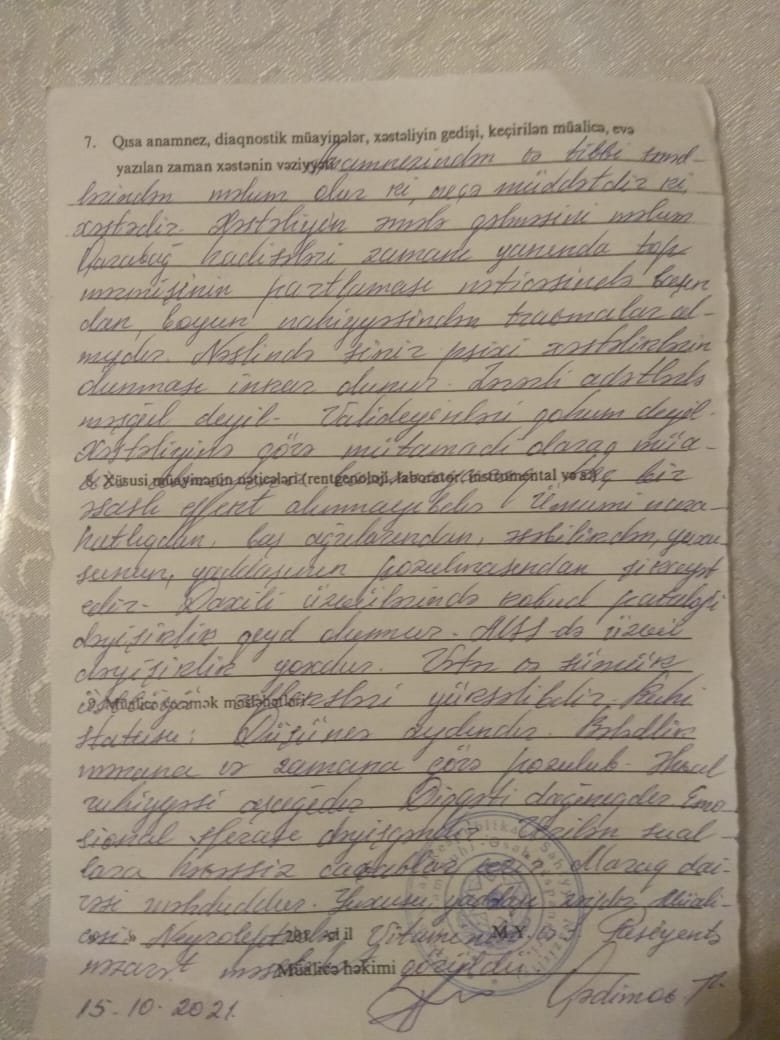 7. Qısa anamnez, diaqnostik müayinələr, xəstəliyin gedişi, keçirilən müalicə, evə
yazılan zaman xəstənin vəziyyəti Anamnezindən və tibbi sənəd-
lərindən məlum olur ki, neçə müddətdir ki,
xəstədir. Xəstəliyin əmələ gəlməsini məlum
Qarabağ hadisələri zamanı yanında top
mərmisinin partlaması nəticəsində başın
dan, boyun nahiyyəsindən travmalar al-
mışdır. Nəslində sinir psixi xəstəliklərin
olunması inkar olunur. Zərərli adətlərlə
məşğul deyil. Valideyinləri qohum deyil.
Xəstəliyinə görə mütəmadi olaraq müa-
8. Xüsusi müayinənin nəticələri (rentgenoloji, laborator, instrumental və s.) heç bir
əsaslı effekt alınmayıbdır. Ümumi nara-
hatlıqdan, baş ağrılarından, əsəbilikdən, yuxu-
sunun, yaddaşının pozulmasından şikayət
edir. Daxili üzvülərində kobud patoloji
dəyişiklik qeyd olunmur. MSS-də üzvü
dəyişiklik yoxdur. Vətər və sümük
9. Müalicə və əmək məsləhətləri refleksləri yüksəlibdir. Ruhi
statusu: Düşüncə aydındır. Bələdlik
məkana və zamana görə pozulub. Əhval
ruhiyyəsi aşağıdır. Diqqəti dağınıqdır. Emo-
sional sferası dəyişkəndir. Verilən sual-
lara həvəssiz cavablar verir. Maraq dai-
rəsi məhduddur. Yuxusu, yaddaşı zəifdir. Müali-
cəsi Neyroleptiklər 201 -ci il Vitaminlər M.Y. və Pasiyentə
nəzarət məsləhət görüldü
Müalicə həkimi
15-10-2021